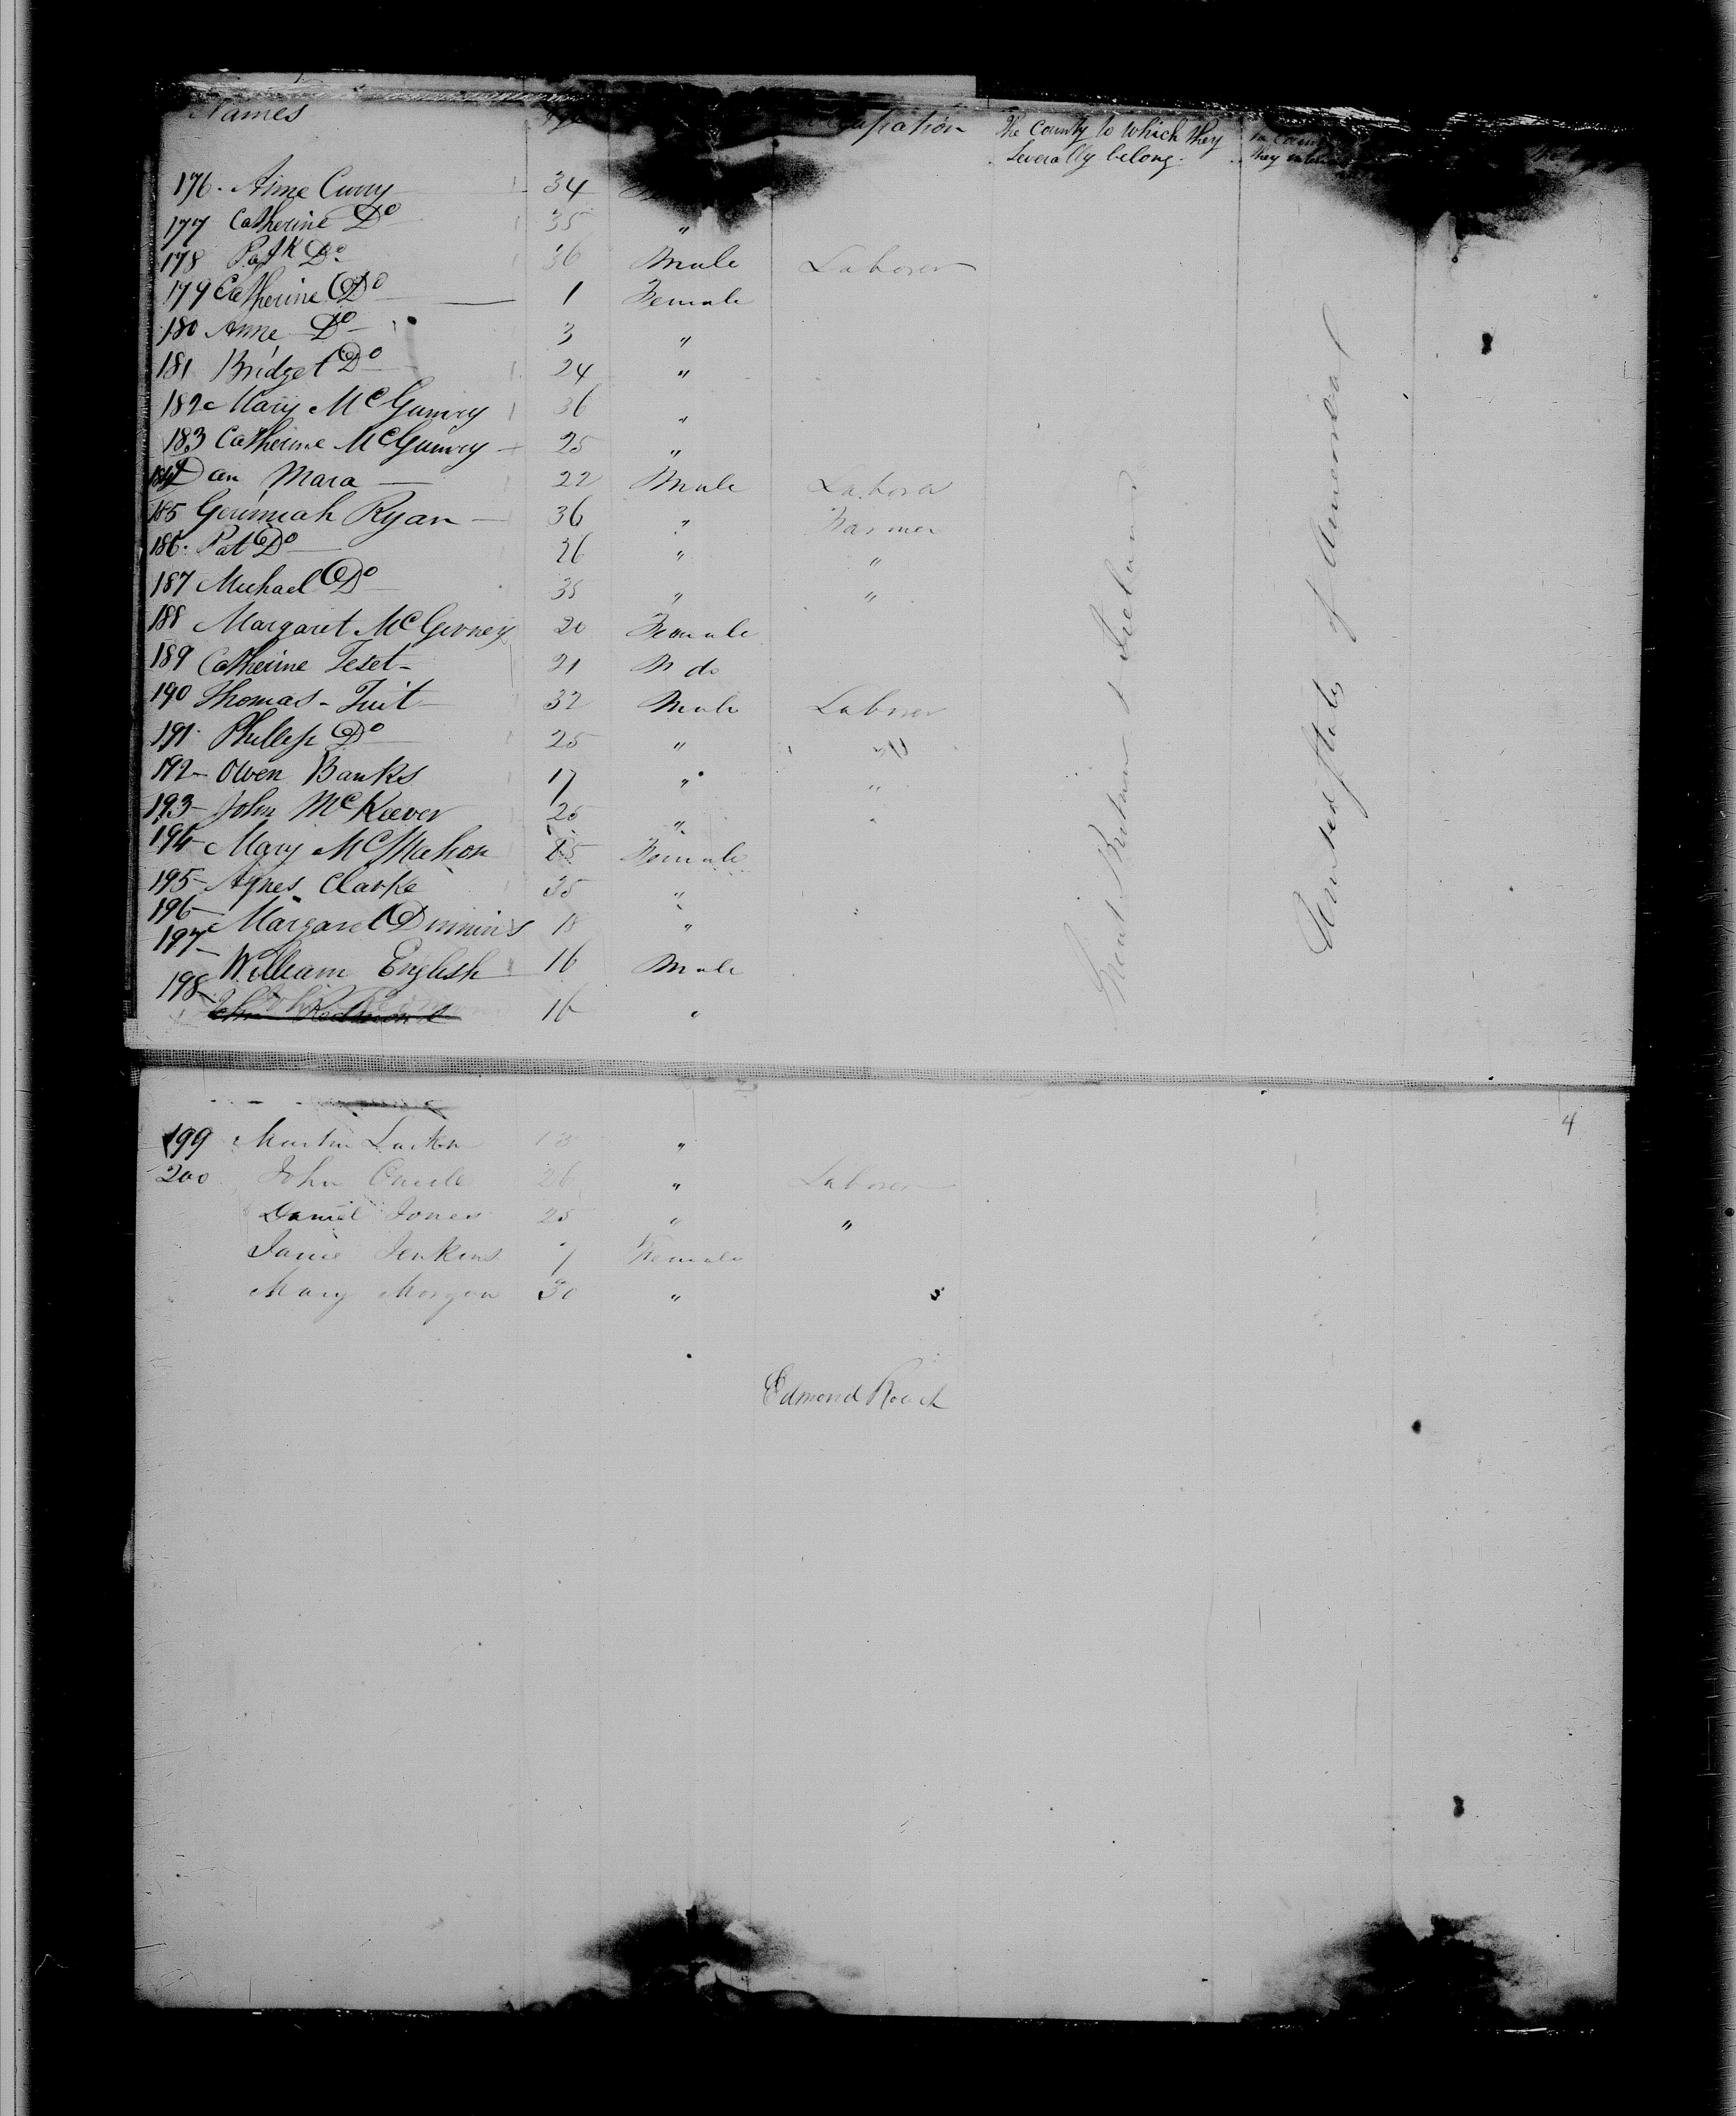 Names Age Occupation The County to which they
Severally belong.
they
176. Anne Curry 34
177 Catherine Do 35 "
178 Patk Do 36 Male Laborer
179 Catherine Do 1 Female
180 Anne Do 3 "
181 Bridget Do 24 "
182 Mary McGunvey 36 "
183 Catherine McGunvey 25 "
184 Dan Mara 22 Male Laborer
185 Gerimiah Ryan 36 " Farmer
186. Pat Do 26 " "
187 Michael Do 35 " "
188 Margaret McGerney 20 Female
189 Catherine Teset 21 do
190 Thomas - Tuit 32 Male Laborer
191 Phillip Do 25 " "
192 - Owen Banks 17 " "
193 - John McKeever 25 " "
194 - Mary McMahon 25 Female
195 - Agnes Clarke 35 "
196 - Margaret Dimmins 18 "
197 - William English 16 Male
198 - John Redmond 16 "
Great Britain & Ireland
United States of America
4
199 Martin Larkin 13 "
200 John 26 " Laborer
Daniel Jones 25 " "
Jane Jenkins 7 Female
Mary Morgan 30 "
Edmond Roach